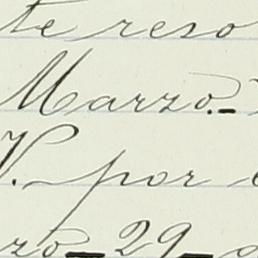 te reso
Marzo.-
V. por
zo-29-